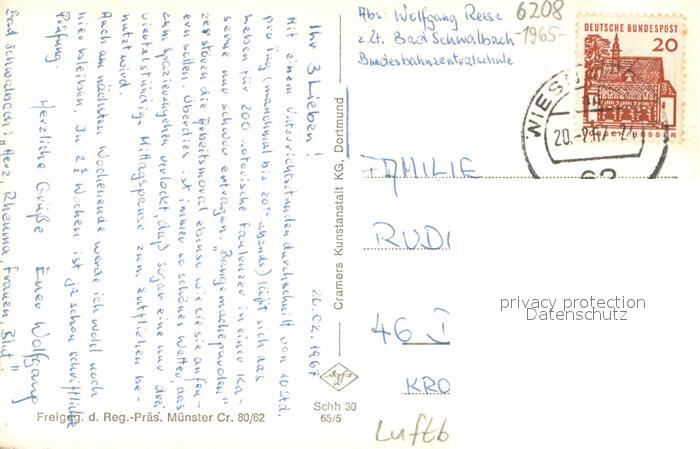 Abs: Wolfgang Reese
z. Zt. Bad Schwalbach
Bundesbahnzentralschule
6208
-1965-
DEUTSCHE BUNDESPOST
20
WIESB
20.-2.67-2
62
20.02.1967
Ihr 3 Lieben!
Mit einem Unterrichtsstundendurchschnitt von 10 Std.
pro Tag (manchmal bis 20°° abends) läßt sich das
Leben für 200 notorische Faulenzer in einer Ka-
serne nur schwer ertragen.
zerstören die Arbeitsmoral ebenso wie sie sie aufen-
ern sollen. Überdies ist immer so schönes Wetter, das
zum Spazierengehen verlockt, daß sogar eine nur drei
viertelstündige Mittagspause zum entfliehen be-
nutzt wird.
Auch am nächsten Wochenende werde ich wohl noch
hier bleiben. In 2½ Wochen ist ja schon schriftliche
Prüfung.
Herzliche Grüße Euer Wolfgang
Bad Schwalbach: „Herz, Rheuma, Frauen, Blut..."
Cramers Kunstanstalt KG, Dortmund
Agfa
Schh 30
65/5
Freigeg. d. Reg.-Präs. Münster Cr. 80/62
FAMILIE
RUDI
46
KRO
Luftb
privacy protection
Datenschutz